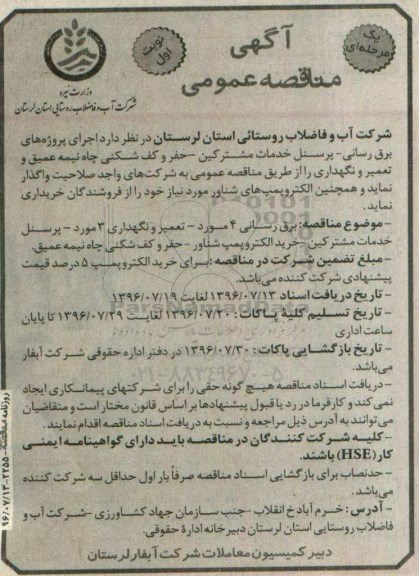 آگهی
مناقصه عمومی
یک
مرحله‌ای
نوبت
اول
وزارت نیرو
شرکت آب و فاضلاب روستایی استان لرستان
شرکت آب و فاضلاب روستائی استان لرستان در نظر دارد اجرای پروژه‌های
برق رسانی- پرسنل خدمات مشترکین -حفر و کف شکنی چاه نیمه عمیق و
تعمیر و نگهداری را از طریق مناقصه عمومی به شرکت‌های واجد صلاحیت واگذار
نماید و همچنین الکتروپمپ‌های شناور مورد نیاز خود را از فروشندگان خریداری
نماید.
-موضوع مناقصه: برق رسانی ۴ مورد - تعمیر و نگهداری ۳ مورد - پرسنل
خدمات مشترکین - خرید الکتروپمپ شناور - حفر و کف شکنی چاه نیمه عمیق.
-مبلغ تضمین شرکت در مناقصه: برای خرید الکتروپمپ ۵ درصد قیمت
پیشنهادی شرکت کننده می‌باشد.
- تاریخ دریافت اسناد ۱۳۹۶/۰۷/۱۳ لغایت ۱۳۹۶/۰۷/۱۹
- تاریخ تسلیم کلیهٔ پاکات: ۱۳۹۶/۰۷/۲۰ لغایت ۱۳۹۶/۰۷/۲۹ تا پایان
ساعت اداری
- تاریخ بازگشایی پاکات: ۱۳۹۶/۰۷/۳۰ در دفتر اداره حقوقی شرکت آبفار
می‌باشد.
- دریافت اسناد مناقصه هیچ گونه حقی را برای شرکتهای پیمانکاری ایجاد
نمی‌کند و کارفرما در رد یا قبول پیشنهادها بر اساس قانون مختار است و متقاضیان
می‌توانند به آدرس ذیل مراجعه و نسبت به دریافت اسناد مناقصه اقدام نمایند.
-کلیه شرکت کنندگان در مناقصه باید دارای گواهینامه ایمنی
کار (HSE) باشند.
-حدنصاب برای بازگشایی اسناد مناقصه صرفاً بار اول حداقل سه شرکت کننده
می‌باشد.
- آدرس: خرم آباد خ انقلاب -جنب سازمان جهاد کشاورزی -شرکت آب و
فاضلاب روستایی استان لرستان دبیرخانه ادارهٔ حقوقی.
دبیر کمیسیون معاملات شرکت آبفار لرستان
روزنامه مناقصه-۲۲۵۵-۹۶/۰۷/۱۳
۰۲۱-۸۸۳۴۹۶۷۰-۵